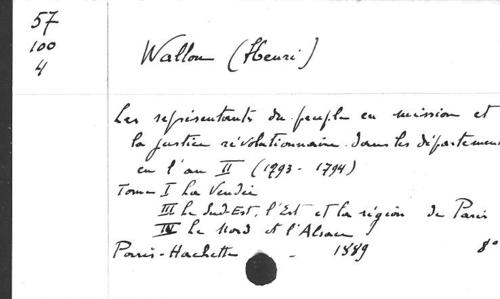 57
100
4
Wallon (Henri)
Les représentants du peuple en mission et
la justice révolutionnaire dans les départements
en l'an II (1793-1794)
Tome I La Vendée
III Le Sud-Est, l'Est et la région de Paris
IV Le Nord et l'Alsace
Paris-Hachette - 1889 8°